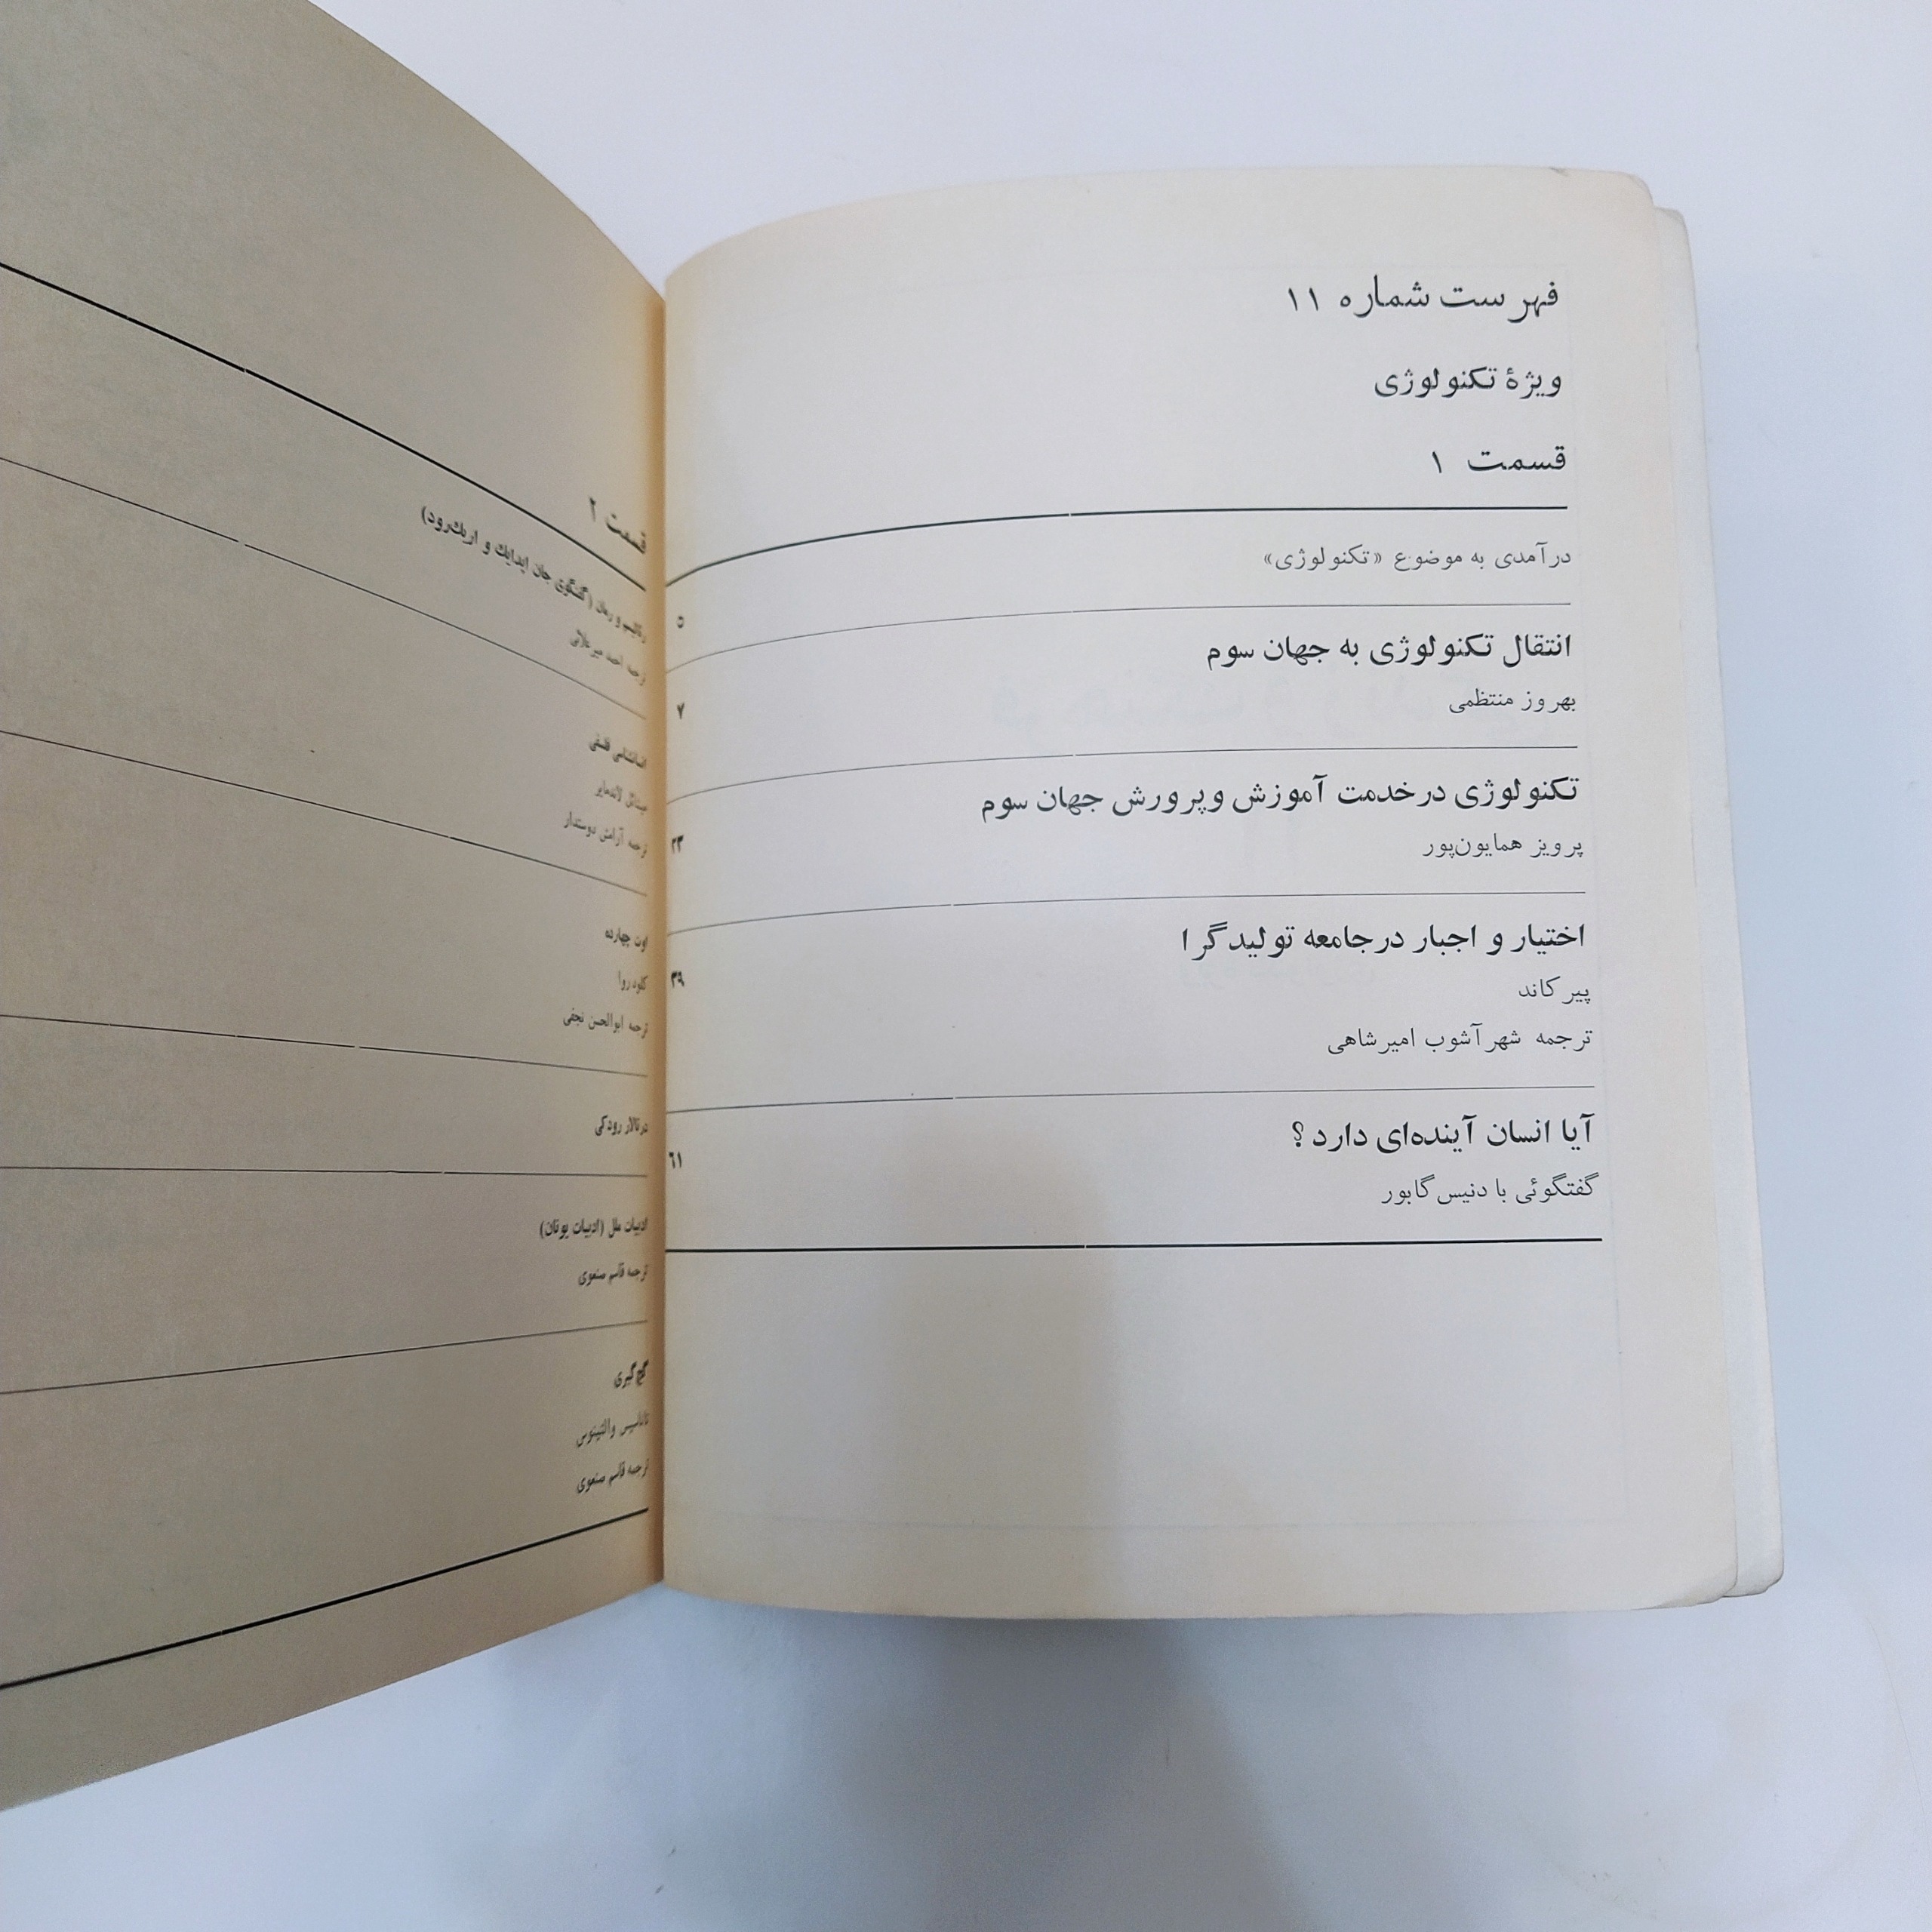 فهرست شماره ۱۱
ویژهٔ تکنولوژی
قسمت ۱
درآمدی به موضوع «تکنولوژی»
۵
انتقال تکنولوژی به جهان سوم
بهروز منتظمی
۷
تکنولوژی درخدمت آموزش وپرورش جهان سوم
پرویز همایون‌پور
۲۳
اختیار و اجبار درجامعه تولیدگرا
پیر کاند
ترجمه شهرآشوب امیرشاهی
۳۹
آیا انسان آینده‌ای دارد ؟
گفتگوئی با دنیس گابور
۶۱
قسمت ۲
رئالیسم و رمان (گفتگوی جان اپدایك و اریك‌رود)
ترجمه احمد میرعلائی
انسانشناسی فلسفی
میشائل لاندمایر
ترجمه آرامش دوستدار
اوت چهارده
کلود روا
ترجمه ابوالحسن نجفی
درتالار رودکی
ادبیات ملل (ادبیات یونان)
ترجمه قاسم صنعوی
گچ‌گیری
والتینوس
ترجمه قاسم صنعوی